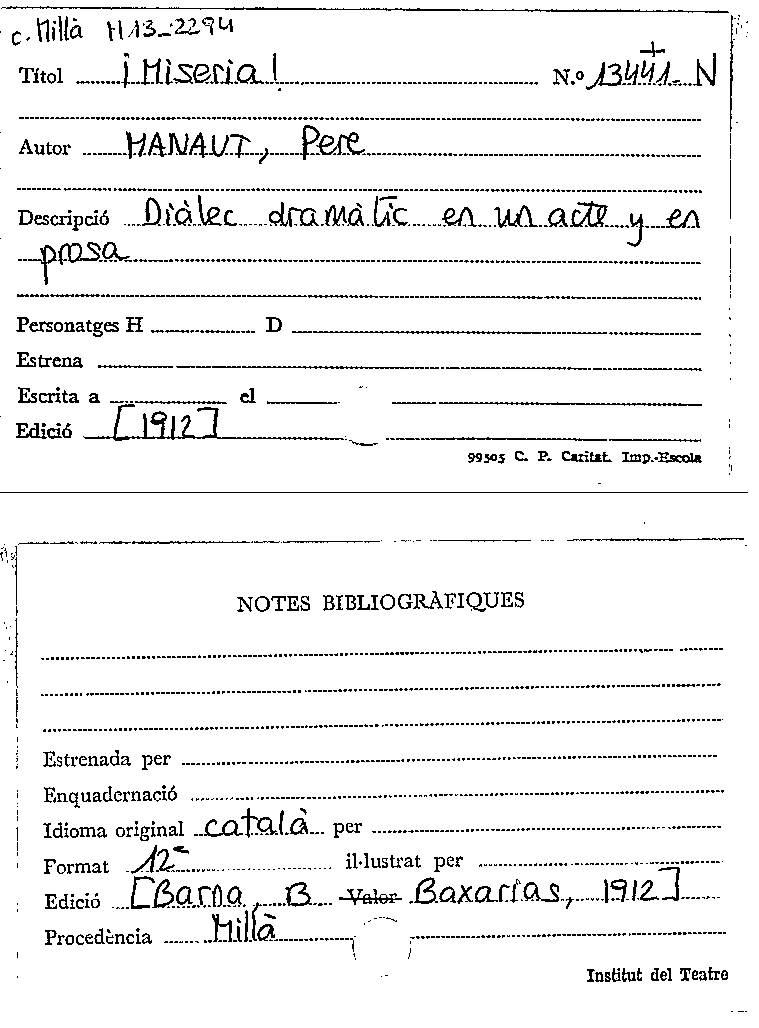 c. Millà M13-2294
Títol ¡Miseria! N.º 13441-N
Autor MANAUT, Pere
Descripció Diàlec dramàtic en un acte y en
prosa
Personatges H D
Estrena
Escrita a el
Edició [1912]
99505 C. P. Caritat. Imp.-Escola
NOTES BIBLIOGRÀFIQUES
Estrenada per
Enquadernació
Idioma original català per
Format 12º il·lustrat per
Edició [Barna, B Valor Baxarias, 1912]
Procedència Millà
Institut del Teatre